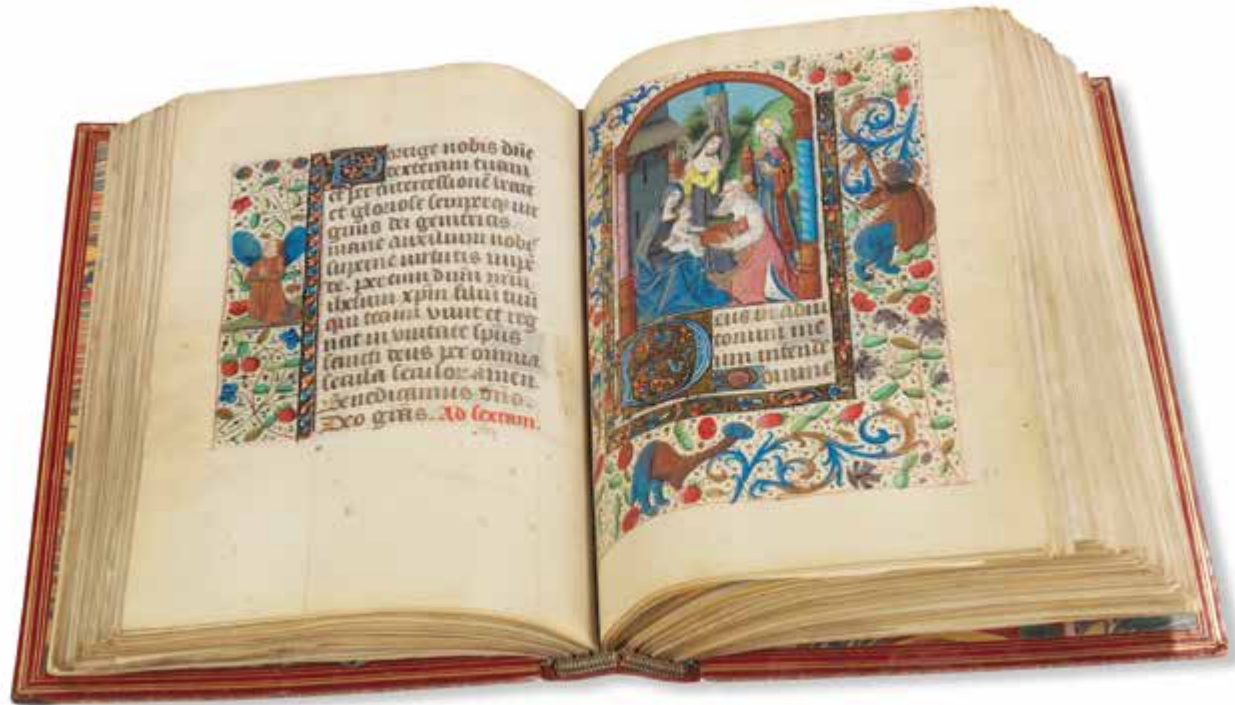 Porrige nobis dñe
dexteram tuam
et per intercessionẽ beate
et gloriose semperqȝ vir
ginis dei genitricis
marie auxilium nobis
superne virtutis impe
de. per eundẽ dñm nr̃m
ihesum xp̃m filiũ tuũ
qui tecum viuit et reg
nat in vnitate sp̃us
sancti deus per omnia
secula seculoɽ amen.
Benedicamus dño.
Deo gr̃as. Ad sextam.
Deus in adiu
torium me
um intende
Domine